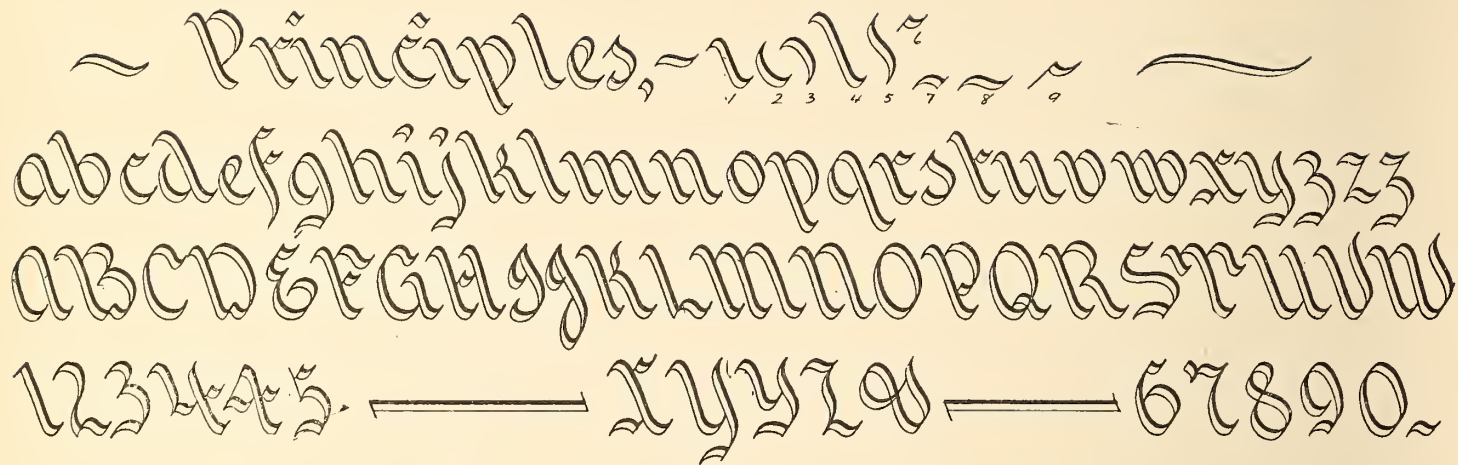 Principles,
1 2 3 4 5 6 7 8 9
abcdefghijklmnopqrstuvwxyzzz
ABCDEFGHIJKLMNOPQRSTUVW
123445. XYYZ& 67890